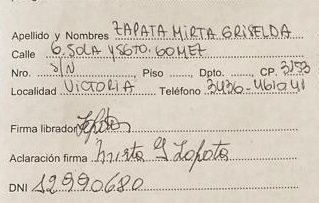 Apellido y Nombres ZAPATA MIRTA GRISELDA
Calle G. SOLA Y SGTO. GOMEZ
Nro. S/N Piso ........, Dpto. ........., CP. 3153
Localidad VICTORIA Teléfono 3436-461041
Firma librador Zapata
Aclaración firma Mirta G Zapata
DNI 12990680